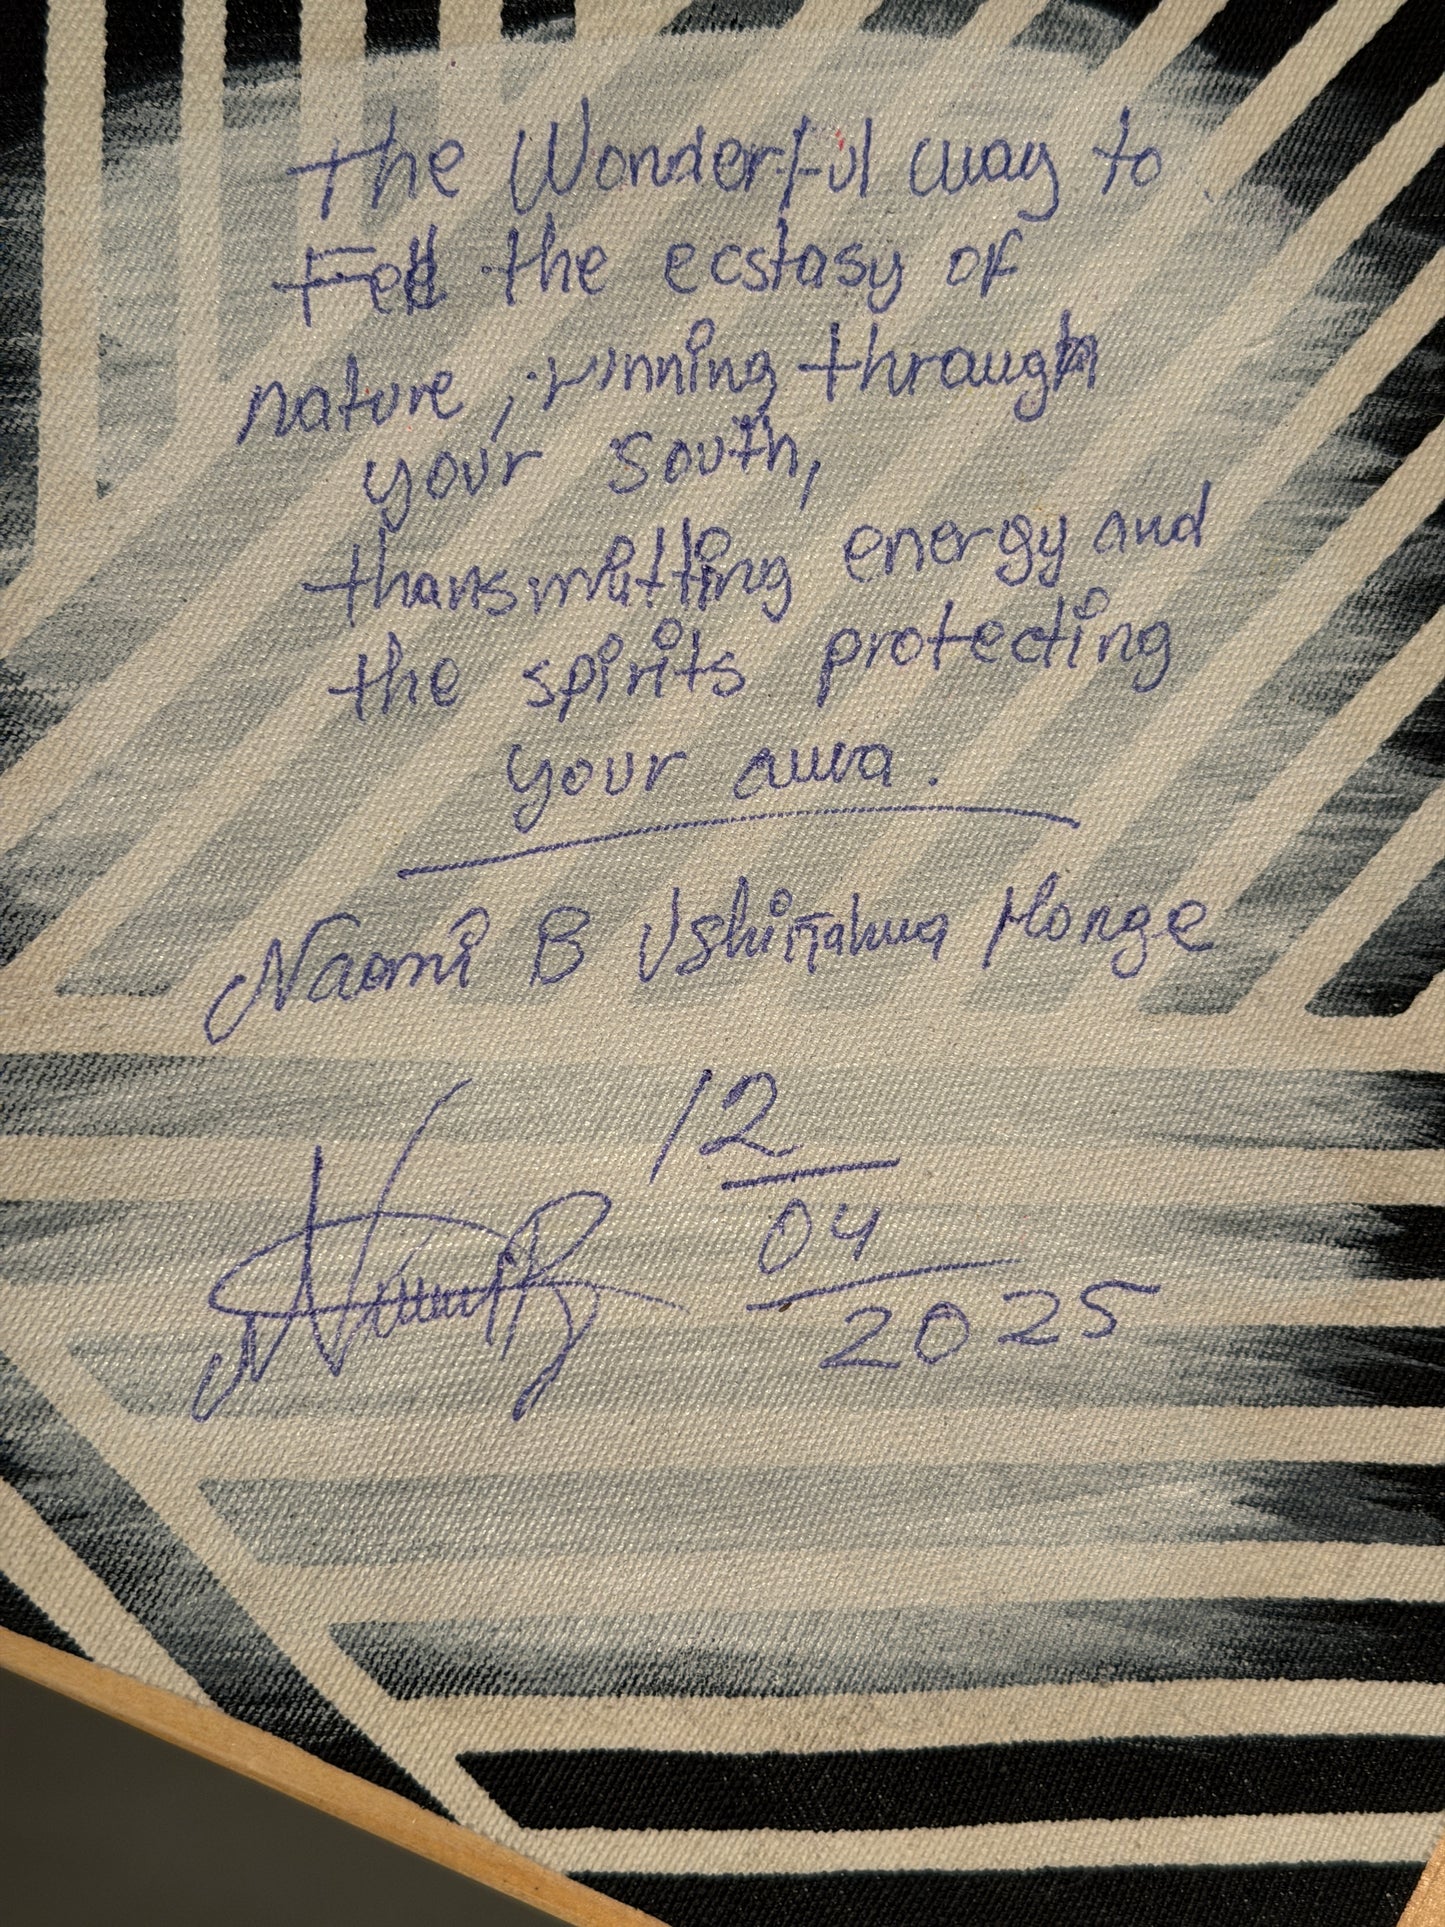 the Wonderful way to
Fell the ecstasy of
nature, running through
your south,
thansmitting energy and
the spirits protecting
your aura.
Naomi B Ushiñahua Monge
12
04
2025